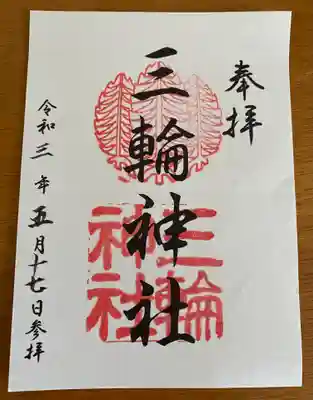 奉拝
三輪神社
三輪神社
令和三年五月十七日参拝